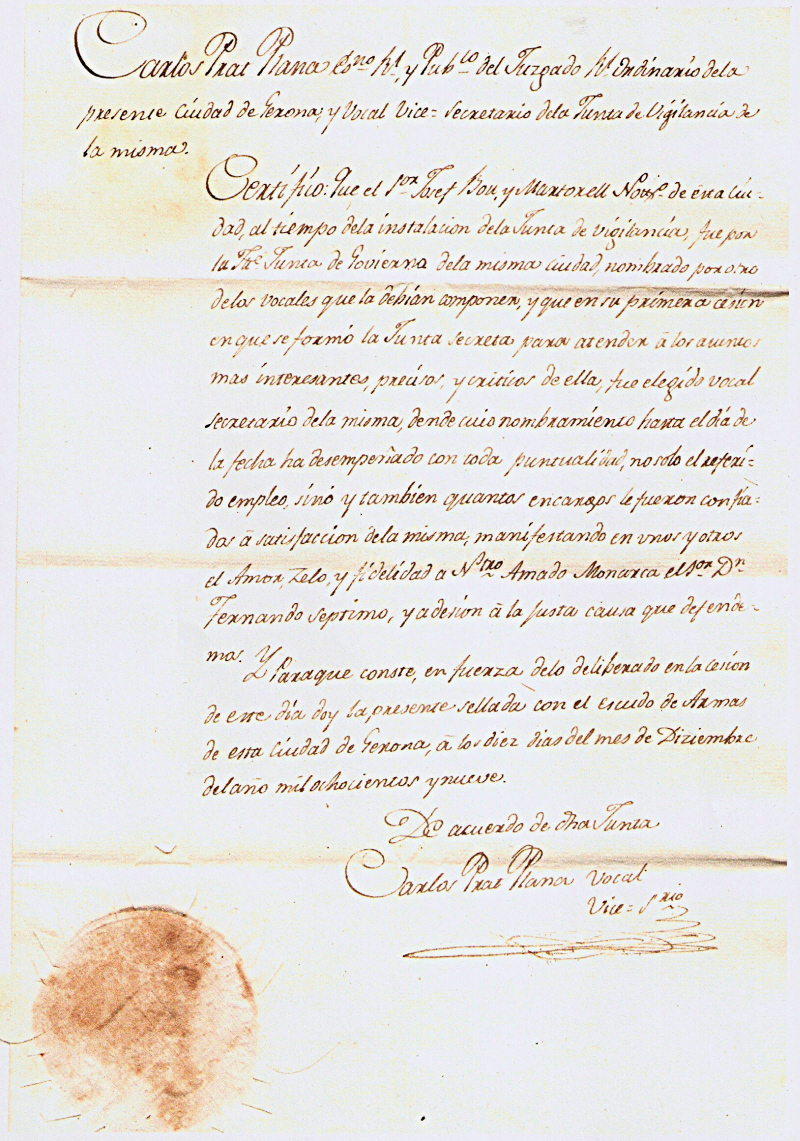 Carlos Prat Plana Esno Rl, y Pubco del Juzgado Rl ordinario dela
presente Ciudad de Gerona, y Vocal Vice= Secretario dela Junta de Vigilancia de
la misma.
Certifico: Que el Sor Josef Bou, y Martorell Notro. de esta Ciu-
dad, al tiempo dela instalacion dela Junta de vigilancia, fue por
la Junta de Govierna dela misma Ciudad, nombrado por otro
delos vocales que la debian componer, y que en su primera cesion
en que se formó la Junta secreta para atender â los asuntos
mas interesantes, precisos, y criticos de ella, fue elegido vocal
secretario dela misma, dende cuio nombramiento hasta el dia de
la fecha ha desempeñado con toda puntualidad, no solo el referi-
do empleo, sinó y tambien quantos encargos le fueron confia-
dos â satisfaccion dela misma, manifestando en vnos y otros
el Amor, Zelo, y fidelidad a Ntro Amado Monarca el Sor Dn
Fernando Septimo, y adesion â la justa causa que defende-
mos. Y Paraque conste, en fuerza delo deliberado en la cesion
de este dia doy la presente sellada con el escudo de Armas
de esta Ciudad de Gerona, â los diez dias del mes de Diziembre
del año mil ochocientos y nueve.
De acuerdo de dha Junta
Carlos Prat Plana Vocal
Vice= Srio